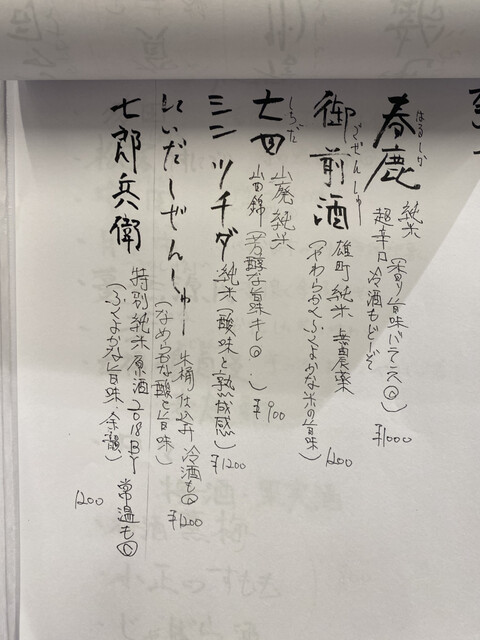 春鹿
はるしか
純米
超辛口 冷酒もどーぞ
(香り旨味バランス◎)
¥1000
御前酒
ごぜんしゅ
雄町 純米 無農薬
(やわらかくふくよかな米の旨味)
1200
七田
しちだ
山廃 純米
山田錦 (芳醇な旨味 キレ◎)
¥900
シン ツチダ
純米 (酸味と熟成感)
¥1200
にいだしぜんしゅー
木桶仕込み 冷酒も◎
(なめらかな酸と旨味)
¥1200
七郎兵衛
特別純米原酒 2018BY 常温も◎
(ふくよかな旨味・余韻)
1200